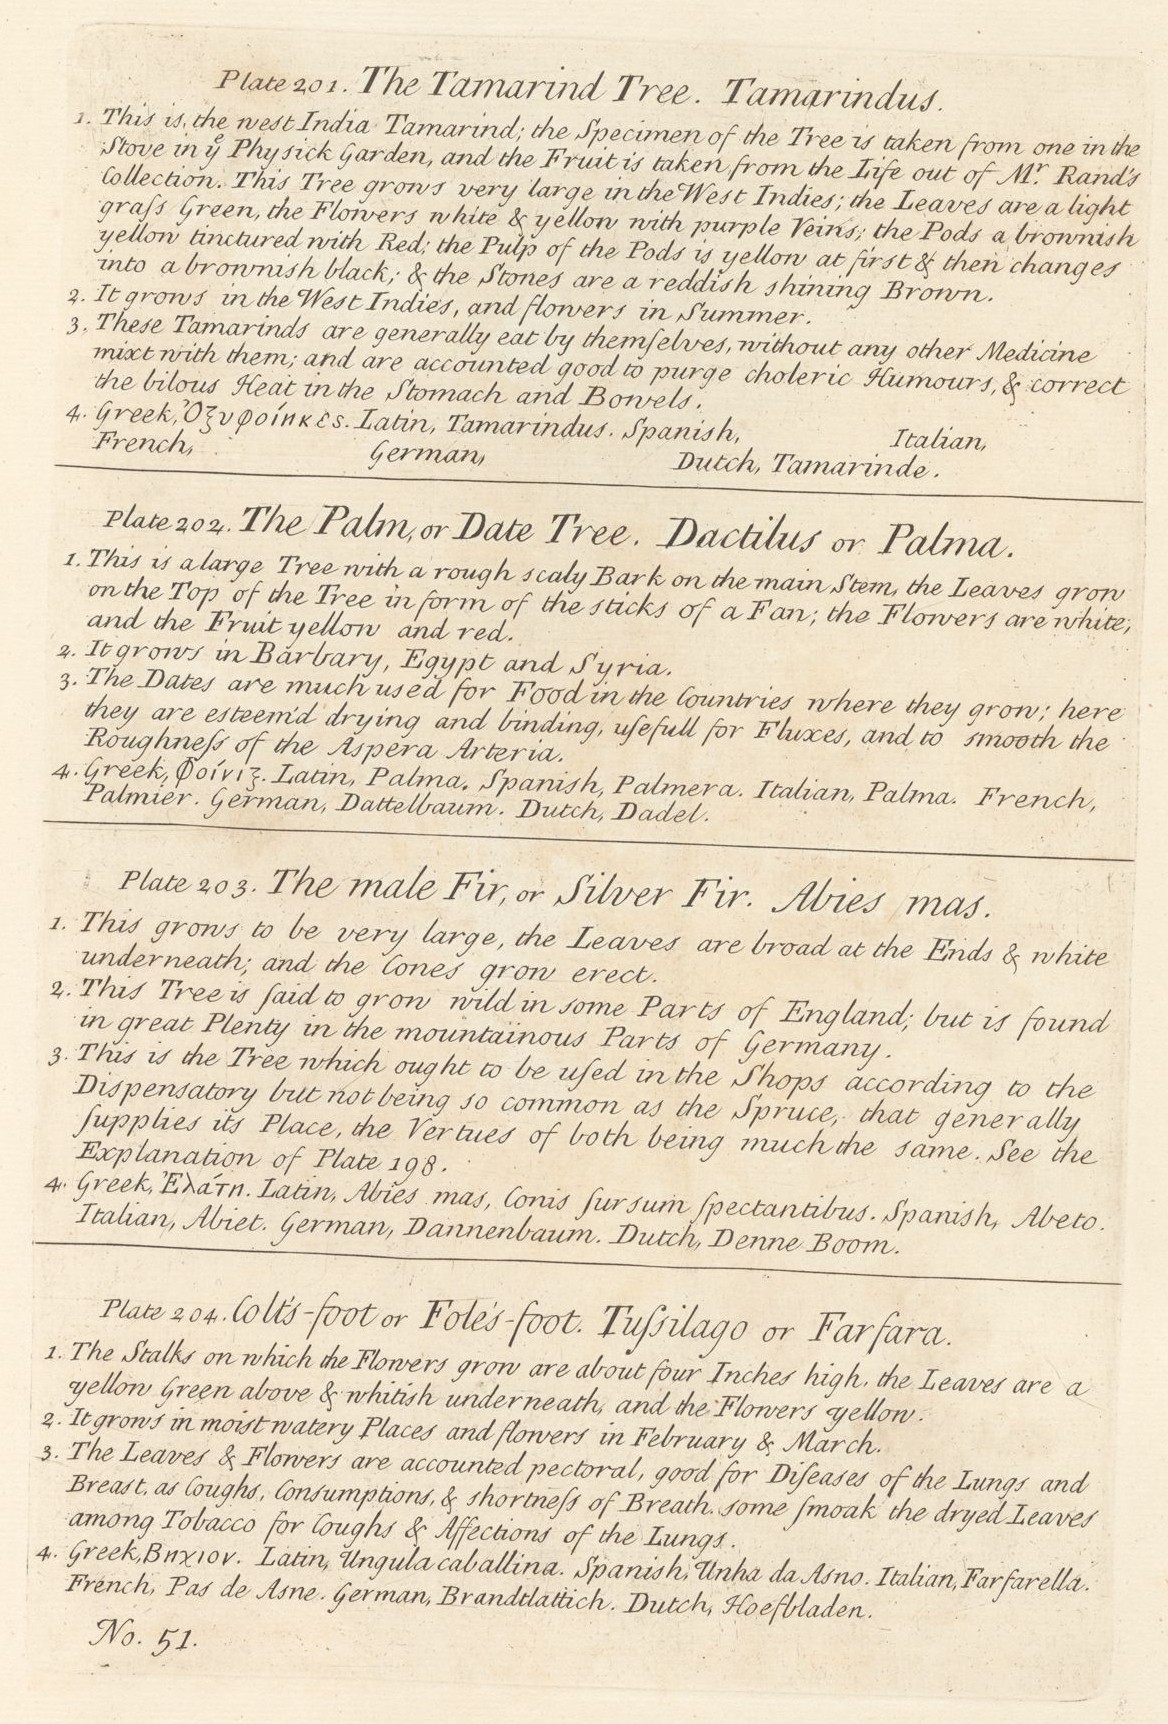 Plate 201. The Tamarind Tree. Tamarindus.
1. This is, the west India Tamarind; the Specimen of the Tree is taken from one in the
Stove in yͤ Physick Garden, and the Fruit is taken from the Life out of Mʳ. Rand's
Collection. This Tree grows very large in the West Indies; the Leaves are a light
graſs Green, the Flowers white & yellow with purple Veins; the Pods a brownish
yellow tinctured with Red; the Pulp of the Pods is yellow at first & then changes
into a brownish black; & the Stones are a reddish shining Brown.
2. It grows in the West Indies, and flowers in Summer.
3. These Tamarinds are generally eat by themſelves, without any other Medicine
mixt with them; and are accounted good to purge choleric Humours, & correct
the bilous Heat in the Stomach and Bowels.
4. Greek, Ὀξυφοίνικες. Latin, Tamarindus. Spanish, Italian,
French, German, Dutch, Tamarinde.
Plate 202. The Palm, or Date Tree. Dactilus or Palma.
1. This is a large Tree with a rough scaly Bark on the main Stem, the Leaves grow
on the Top of the Tree in form of the sticks of a Fan; the Flowers are white,
and the Fruit yellow and red.
2. It grows in Barbary, Egypt and Syria.
3. The Dates are much used for Food in the Countries where they grow; here
they are esteem'd drying and binding, uſefull for Fluxes, and to smooth the
Roughneſs of the Aspera Arteria.
4. Greek, Φοίνιξ. Latin, Palma. Spanish, Palmera. Italian, Palma. French,
Palmier. German, Dattelbaum. Dutch, Dadel.
Plate 203. The male Fir, or Silver Fir. Abies mas.
1. This grows to be very large, the Leaves are broad at the Ends & white
underneath; and the Cones grow erect.
2. This Tree is ſaid to grow wild in some Parts of England; but is found
in great Plenty in the mountainous Parts of Germany.
3. This is the Tree which ought to be uſed in the Shops according to the
Dispensatory but not being so common as the Spruce, that generally
ſupplies its Place, the Vertues of both being much the same. See the
Explanation of Plate 198.
4. Greek, Ἐλάτη. Latin, Abies mas, Conis ſursum ſpectantibus. Spanish, Abeto.
Italian, Abiet. German, Dannenbaum. Dutch, Denne Boom.
Plate 204. Colt's-foot or Fole's-foot. Tuſsilago or Farfara.
1. The Stalks on which the Flowers grow are about four Inches high, the Leaves are a
yellow Green above & whitish underneath, and the Flowers yellow.
2. It grows in moist watery Places and flowers in February & March.
3. The Leaves & Flowers are accounted pectoral, good for Diſeases of the Lungs and
Breast, as Coughs, Consumptions, & shortneſs of Breath. some ſmoak the dryed Leaves
among Tobacco for Coughs & Affections of the Lungs.
4. Greek, Βηχιον. Latin, Ungula caballina. Spanish, Unha da Asno. Italian, Farfarella.
French, Pas de Asne. German, Brandtlattich. Dutch, Hoefbladen.
No. 51.